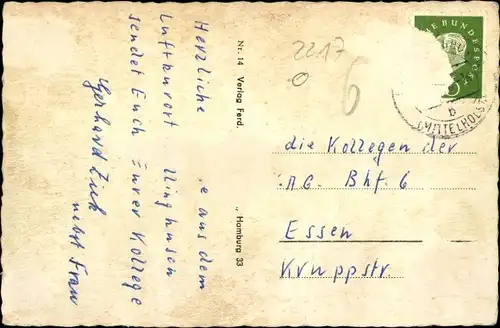 Herzliche
e aus dem
Luftkurort
llinghusen
sendet Euch Eurer Kollege
Gerhard
nebst Frau
Nr. 14 Verlag Ferd.
„ Hamburg 33
2217
6
E BUNDESPOST
(MITTELHOLST
b
die Kollegen der
AG. Bhf. 6
Essen
Kruppstr.